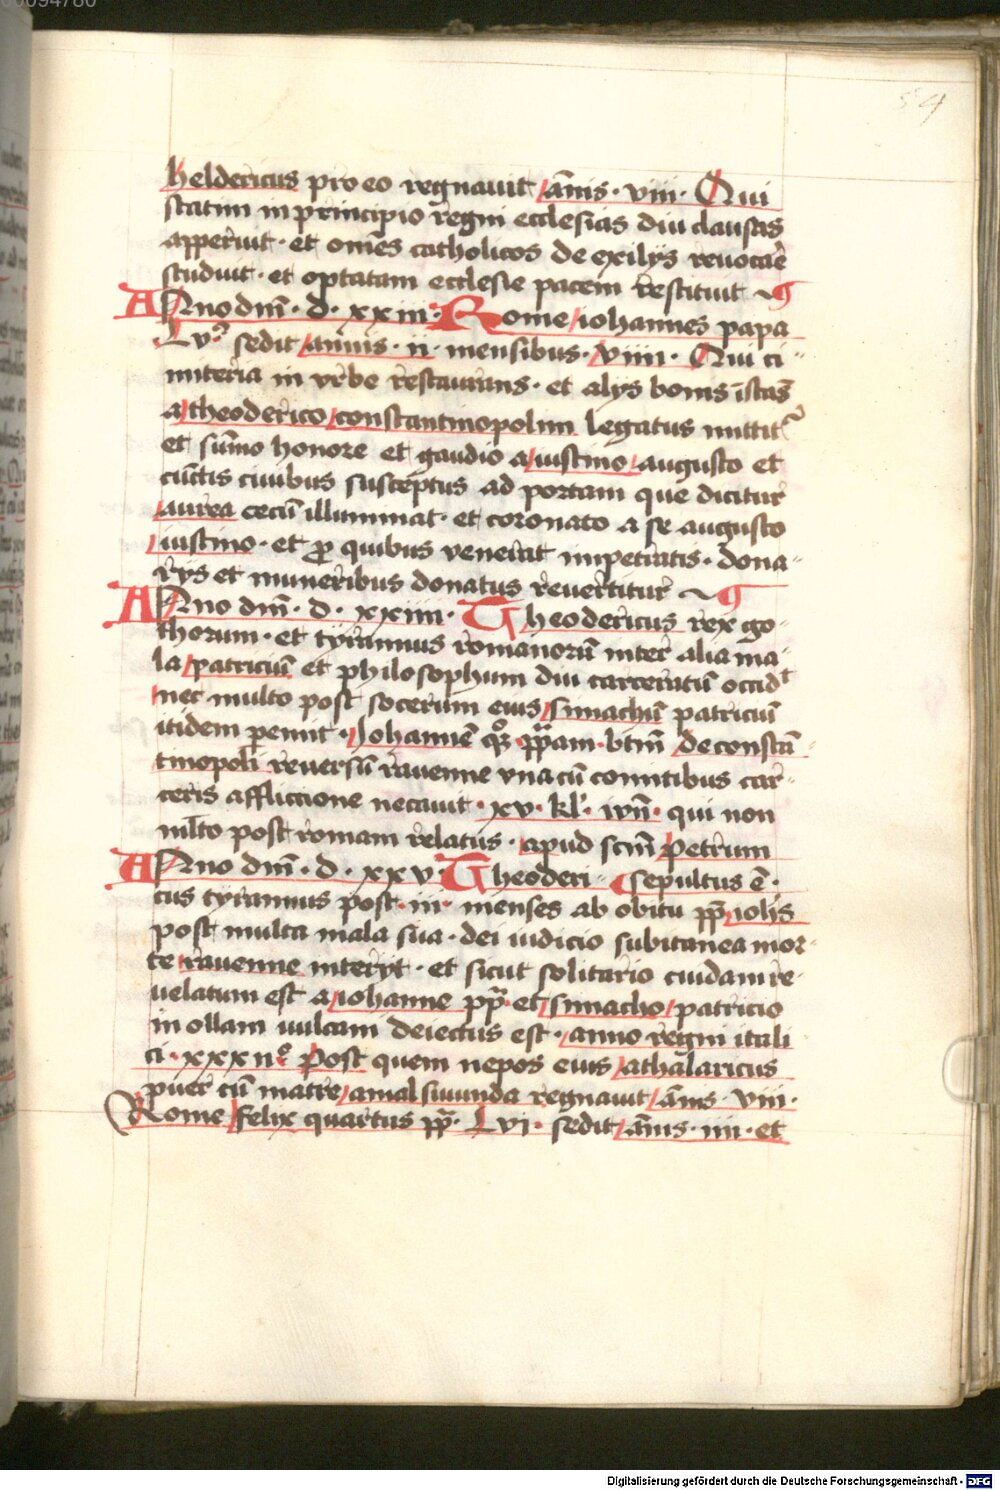 54
heldericus pro eo regnauit an̄is · viii · Qui
statim in principio regni ecclesias diu clausas
apperuit · et om̄es catholicos de exilijs reuocae
studuit · et optatam ecclesie pacem restituit ¶
Anno dm̄ · d · xxiii · Rome iohannes papa
Lvꝰ sedit annis · ii · mensibus · viiii · Qui ci-
miteria in vrbe restaurans · et alijs bonis īstās
a theoderico constantinopolim legatus mittit᷑
et sūmo honore et gaudio a iustino augusto et
cūctis ciuibus susceptus ad portam que dicitur
aurea cecū illuminat · et coronato a se augusto
iustino · et ꝓ quibus venerat impetratis · dona-
rijs et muneribus donatus reuertitur ¶
Anno dm̄ · d · xxiiii · Theodericus rex go-
thorum · et tyrannus romanorū inter alia ma-
la patriciū et philosophum diu carceratū occidᵗ
nec multo post socerum eius simachū patriciū
itidem pemit · Iohannē qͦꝫ ꝓp̄am · btm̄ de constā-
tinopoli reuersū rauenne vna cū comitibus car-
ceris affliccione necauit · xv · kl' · iun̄ · qui non
ml̄to post romam relatus · apud scm̄ petrum
Anno dm̄ · d · xxv · Theoderi- ¶ sepultus ē ·
cus tyrannus post · iii · menses ab obitu pp̄ iohis
post multa mala sua · dei iudicio subitanea mor-
te rauenne interijt · et sicut solitario cuidam re-
uelatum est a iohanne pp̄ · et simacho patricio
in ollam vulcani deiectus est · anno regni itali
ci · xxxiiº Post quem nepos eius athalaricus
puer cū matre amalsiuunda regnauit an̄is · viii ·
Rome felix quartus pp̄ · Lvi · sedit an̄is · iiii · et
Digitalisierung gefördert durch die Deutsche Forschungsgemeinschaft - DFG